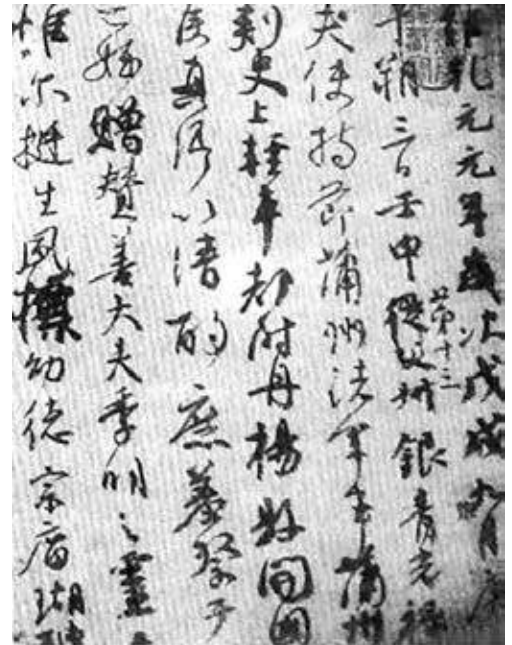 維乾元元年歲次戊戌九月庚
午朔三日壬申第十三從父銀青光祿
夫使持節蒲州諸軍事蒲州
刺史上輕車都尉丹楊縣開國
侯真卿以清酌庶羞祭于
亡姪贈贊善大夫季明之靈
惟爾挺生夙標幼德宗廟瑚